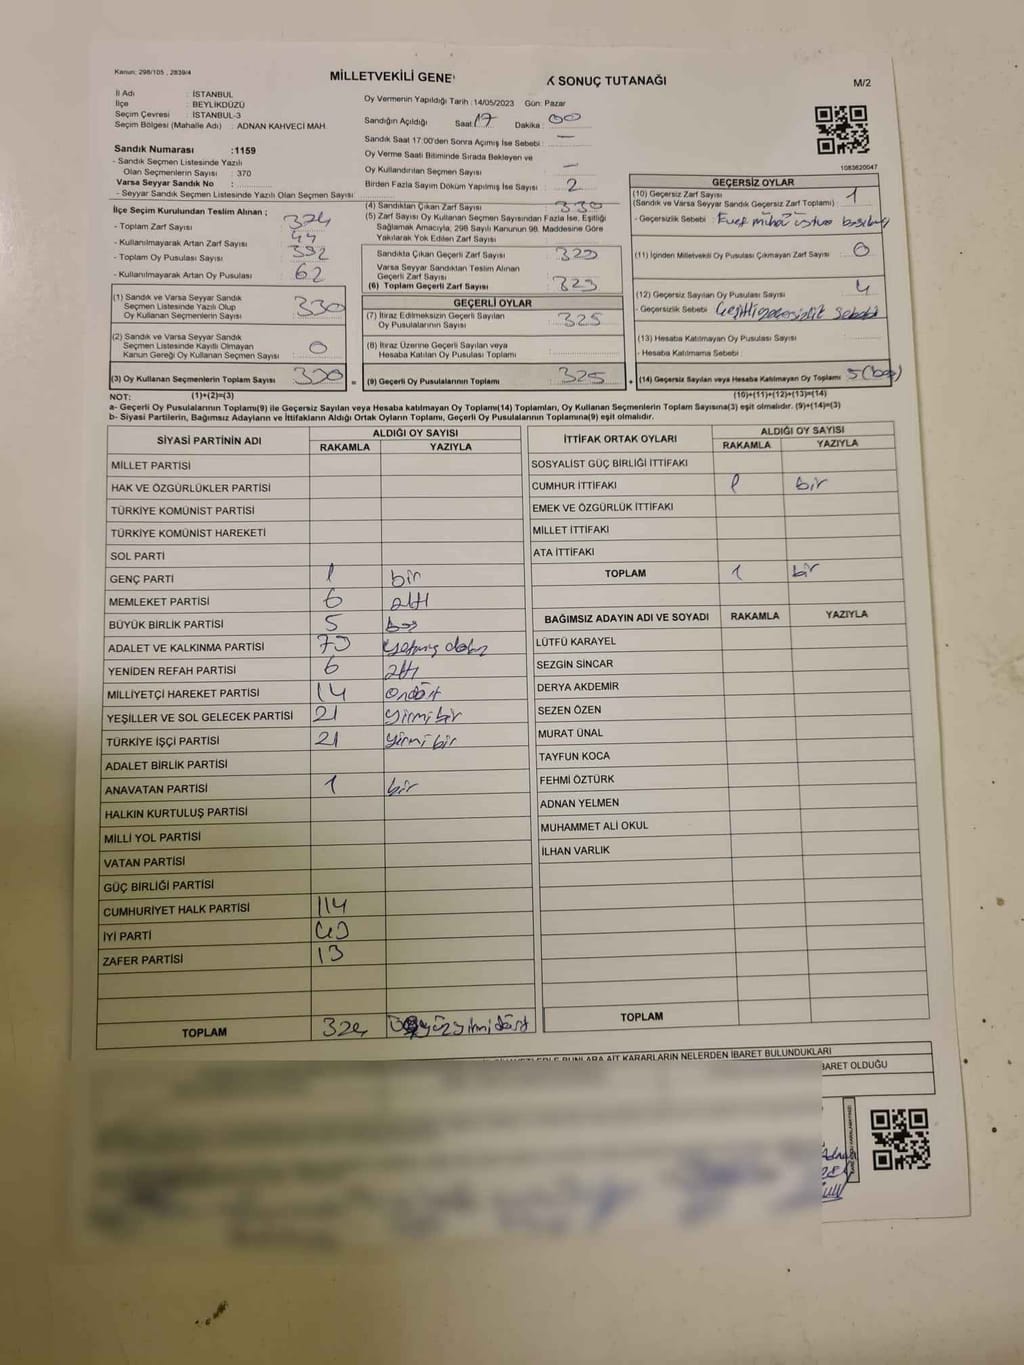 Kanun: 298/105 , 2839/4
MİLLETVEKİLİ GENE
K SONUÇ TUTANAĞI
M/2
İl Adı : İSTANBUL
İlçe : BEYLİKDÜZÜ
Seçim Çevresi : İSTANBUL-3
Seçim Bölgesi (Mahalle Adı) : ADNAN KAHVECİ MAH.
Sandık Numarası :1159
- Sandık Seçmen Listesinde Yazılı
Olan Seçmenlerin Sayısı : 370
Varsa Seyyar Sandık No :
- Seyyar Sandık Seçmen Listesinde Yazılı Olan Seçmen Sayısı:
Oy Vermenin Yapıldığı Tarih :14/05/2023 Gün: Pazar
Sandığın Açıldığı Saat: 17 Dakika : 00
Sandık Saat 17:00'den Sonra Açımış İse Sebebi : —
Oy Verme Saati Bitiminde Sırada Bekleyen ve
Oy Kullandırılan Seçmen Sayısı : —
Birden Fazla Sayım Döküm Yapılmış İse Sayısı : 2
1083620047
İlçe Seçim Kurulundan Teslim Alınan ;
- Toplam Zarf Sayısı
- Kullanılmayarak Artan Zarf Sayısı : 44
- Toplam Oy Pusulası Sayısı
- Kullanılmayarak Artan Oy Pusulası : 62
(1) Sandık ve Varsa Seyyar Sandık
Seçmen Listesinde Yazılı Olup
Oy Kullanan Seçmenlerin Sayısı : 330
(2) Sandık ve Varsa Seyyar Sandık
Seçmen Listesinde Kayıtlı Olmayan
Kanun Gereği Oy Kullanan Seçmen Sayısı : 0
(3) Oy Kullanan Seçmenlerin Toplam Sayısı : 330 =
(4) Sandıktan Çıkan Zarf Sayısı : 330
(5) Zarf Sayısı Oy Kullanan Seçmen Sayısından Fazla İse, Eşitliği
Sağlamak Amacıyla, 298 Sayılı Kanunun 98. Maddesine Göre
Yakılarak Yok Edilen Zarf Sayısı
Sandıkta Çıkan Geçerli Zarf Sayısı : 329
Varsa Seyyar Sandıktan Teslim Alınan
Geçerli Zarf Sayısı
(6) Toplam Geçerli Zarf Sayısı : 329
GEÇERLİ OYLAR
(7) İtiraz Edilmeksizin Geçerli Sayılan
Oy Pusulalarının Sayısı : 325
(8) İtiraz Üzerine Geçerli Sayılan veya
Hesaba Katılan Oy Pusulası Toplamı
(9) Geçerli Oy Pusulalarının Toplamı : 325 +
GEÇERSİZ OYLAR
(10) Geçersiz Zarf Sayısı
(Sandık ve Varsa Seyyar Sandık Geçersiz Zarf Toplamı) : 1
- Geçersizlik Sebebi :
(11) İçinden Milletvekili Oy Pusulası Çıkmayan Zarf Sayısı : 0
(12) Geçersiz Sayılan Oy Pusulası Sayısı : 4
- Geçersizlik Sebebi : Çeşitli geçersizlik sebebi
(13) Hesaba Katılmayan Oy Pusulası Sayısı :
- Hesaba Katılmama Sebebi :
(14) Geçersiz Sayılan veya Hesaba Katılmayan Oy Toplamı : 5 (beş)
NOT: (1)+(2)=(3)
(10)+(11)+(12)+(13)=(14)
a- Geçerli Oy Pusulalarının Toplamı(9) ile Geçersiz Sayılan veya Hesaba katılmayan Oy Toplamı(14) Toplamları, Oy Kullanan Seçmenlerin Toplam Sayısına(3) eşit olmalıdır. (9)+(14)=(3)
b- Siyasi Partilerin, Bağımsız Adayların ve İttifakların Aldığı Ortak Oyların Toplamı, Geçerli Oy Pusulalarının Toplamına(9) eşit olmalıdır.
SİYASİ PARTİNİN ADI
ALDIĞI OY SAYISI
RAKAMLA YAZIYLA
MİLLET PARTİSİ
HAK VE ÖZGÜRLÜKLER PARTİSİ
TÜRKİYE KOMÜNİST PARTİSİ
TÜRKİYE KOMÜNİST HAREKETİ
SOL PARTİ
GENÇ PARTİ 1 bir
MEMLEKET PARTİSİ 6 altı
BÜYÜK BİRLİK PARTİSİ 5 beş
ADALET VE KALKINMA PARTİSİ 79 yetmiş dokuz
YENİDEN REFAH PARTİSİ 6 altı
MİLLİYETÇİ HAREKET PARTİSİ 14 ondört
YEŞİLLER VE SOL GELECEK PARTİSİ 21 yirmibir
TÜRKİYE İŞÇİ PARTİSİ 21 yirmi bir
ADALET BİRLİK PARTİSİ
ANAVATAN PARTİSİ 1 bir
HALKIN KURTULUŞ PARTİSİ
MİLLİ YOL PARTİSİ
VATAN PARTİSİ
GÜÇ BİRLİĞİ PARTİSİ
CUMHURİYET HALK PARTİSİ 114
İYİ PARTİ
ZAFER PARTİSİ 13
TOPLAM 324 yüzyirmidört
İTTİFAK ORTAK OYLARI
ALDIĞI OY SAYISI
RAKAMLA YAZIYLA
SOSYALİST GÜÇ BİRLİĞİ İTTİFAKI
CUMHUR İTTİFAKI 1 bir
EMEK VE ÖZGÜRLÜK İTTİFAKI
MİLLET İTTİFAKI
ATA İTTİFAKI
TOPLAM 1 bir
BAĞIMSIZ ADAYIN ADI VE SOYADI RAKAMLA YAZIYLA
LÜTFÜ KARAYEL
SEZGİN SİNCAR
DERYA AKDEMİR
SEZEN ÖZEN
MURAT ÜNAL
TAYFUN KOCA
FEHMİ ÖZTÜRK
ADNAN YELMEN
MUHAMMET ALİ OKUL
İLHAN VARLIK
TOPLAM
BUNLARA AİT KARARLARIN NELERDEN İBARET BULUNDUKLARI
BARET OLDUĞU